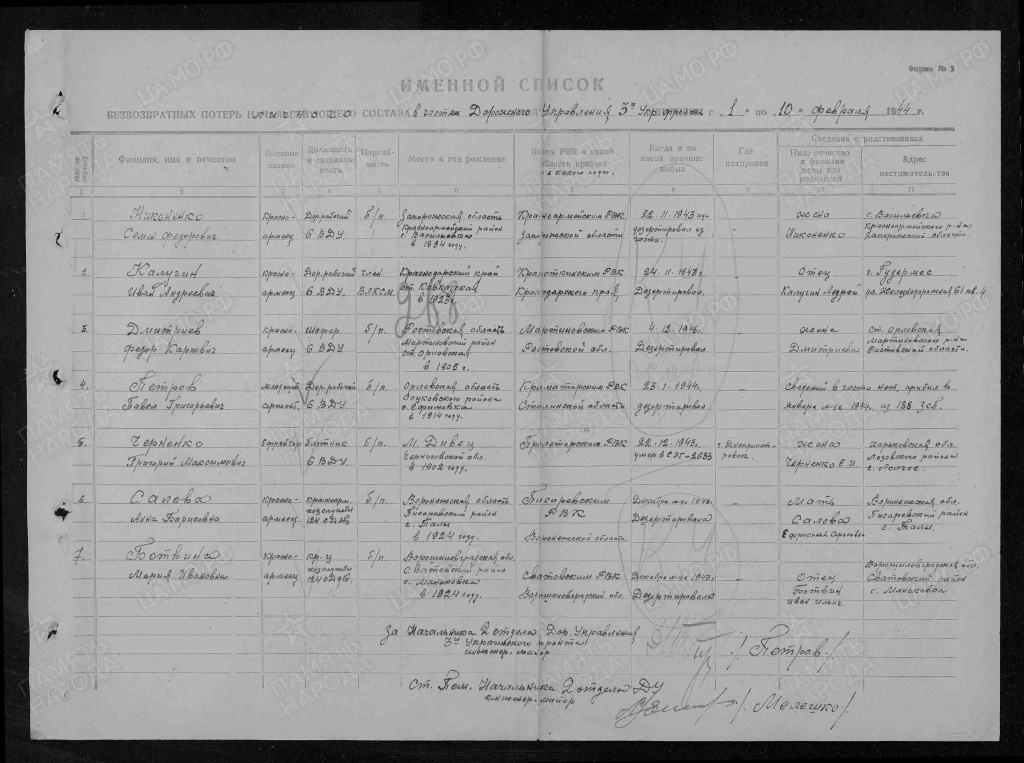 Форма № 2
ИМЕННОЙ СПИСОК
БЕЗВОЗВРАТНЫХ ПОТЕРЬ личного СОСТАВА в частях Дорожного Управления 3го Укр. фронта с „1" по „10" февраля 1944 г.
Сведения о родственниках
Фамилия, имя и отчество
Военное звание
Должность и специальность
Партийность
Место и год рождения
Каким РВК и какой области призван
Когда и по какой причине выбыл
Где похоронен
Имя, отчество и фамилия жены или родителей
Адрес местожительства
1 2 3 4 5 6 7 8 9 10 11
1. Никоненко Красно- Дор.рабочий б/п. Запорожская область Красноармейским РВК 22.11.1943 жена с. Васильевка
Семен Федорович армеец 6 ВДУ. Красноармейский район Запорожской области дезертировал из части. Никоненко Красноармейского р-на Запорожской области.
с. Васильевка
в 1894 году.
2. Калугин красно- Дор.рабочий член Краснодарский край Кропоткинским РВК 24.11.1943г. – Отец г. Гудермес
Иван Андреевич армеец 6 ВДУ. ВЛКСМ. ст. Кавказская Краснодарского края Дезертировал. Калугин Андрей ул. Железнодорожная 61 кв. 4
в 1923г.
3. Дмитриев красно- шофер б/п. Ростовская область Мартиновским РВК 4.12.1943г. – жена ст. Орловская
Федор Карпович армеец 6 ВДУ Мартиновский район Ростовской обл. Дезертировал Дмитриева Мартиновского р-на Ростовской области.
ст. Орловская
в 1905 г.
4. Петров Младший Дор.рабочий б/п. Орловская область Краматорским РВК 23.1.1944г. – Сведений в части нет, прибыл в
Павел Григорьевич сержант. 6 ВДУ. района Сталинской области дезертировал январе м-це 1944г. из 188 зсп.
с. Ефимовка
в 1914 году.
5. Черненко Ефрейтор плотник б/п. М. Дивец Пролетарским РВК 22.12.1943г. г. Днепропет- жена Харьковская обл.
Григорий Максимович 6 ВДУ. Черниговской обл. умер в СЭГ-2633 ровск. Черненко Е.И. Лозовского района
в 1902 году.
6. Салова Красно- Красноарм. б/п. Воронежская область Писаревским РВК Декабре м-це 1943г. Мать Воронежская обл.
Анна Борисовна армеец хозслужбы Писаревский район Воронежской области. Дезертировала Салова Писаревский район
124 ОДЭБ с. Талы Ефросинья Сергеевна с. Талы.
в 1924 году.
7. Ботвина Красно- кр-ц б/п. Ворошиловградская обл. Сватовским РВК Декабре м-це 1943г. Отец Ворошиловградская обл.
Мария Ивановна армеец хозслужбы Сватовский район Ворошиловградской обл. Дезертировала Ботвин Иван Ильич. Сватовский район
124 ОДЭБ. с. Маньковка с. Маньковка
в 1924 году.
За Начальника 2 отдела Дор. Управления
3го Украинского фронта
инженер-майор /Петров/
Ст. Пом. Начальника 2 отдела ДУ
инженер-майор /Мелешко/.
ЦАМО.РФ
ПАМЯТЬ НАРОДА